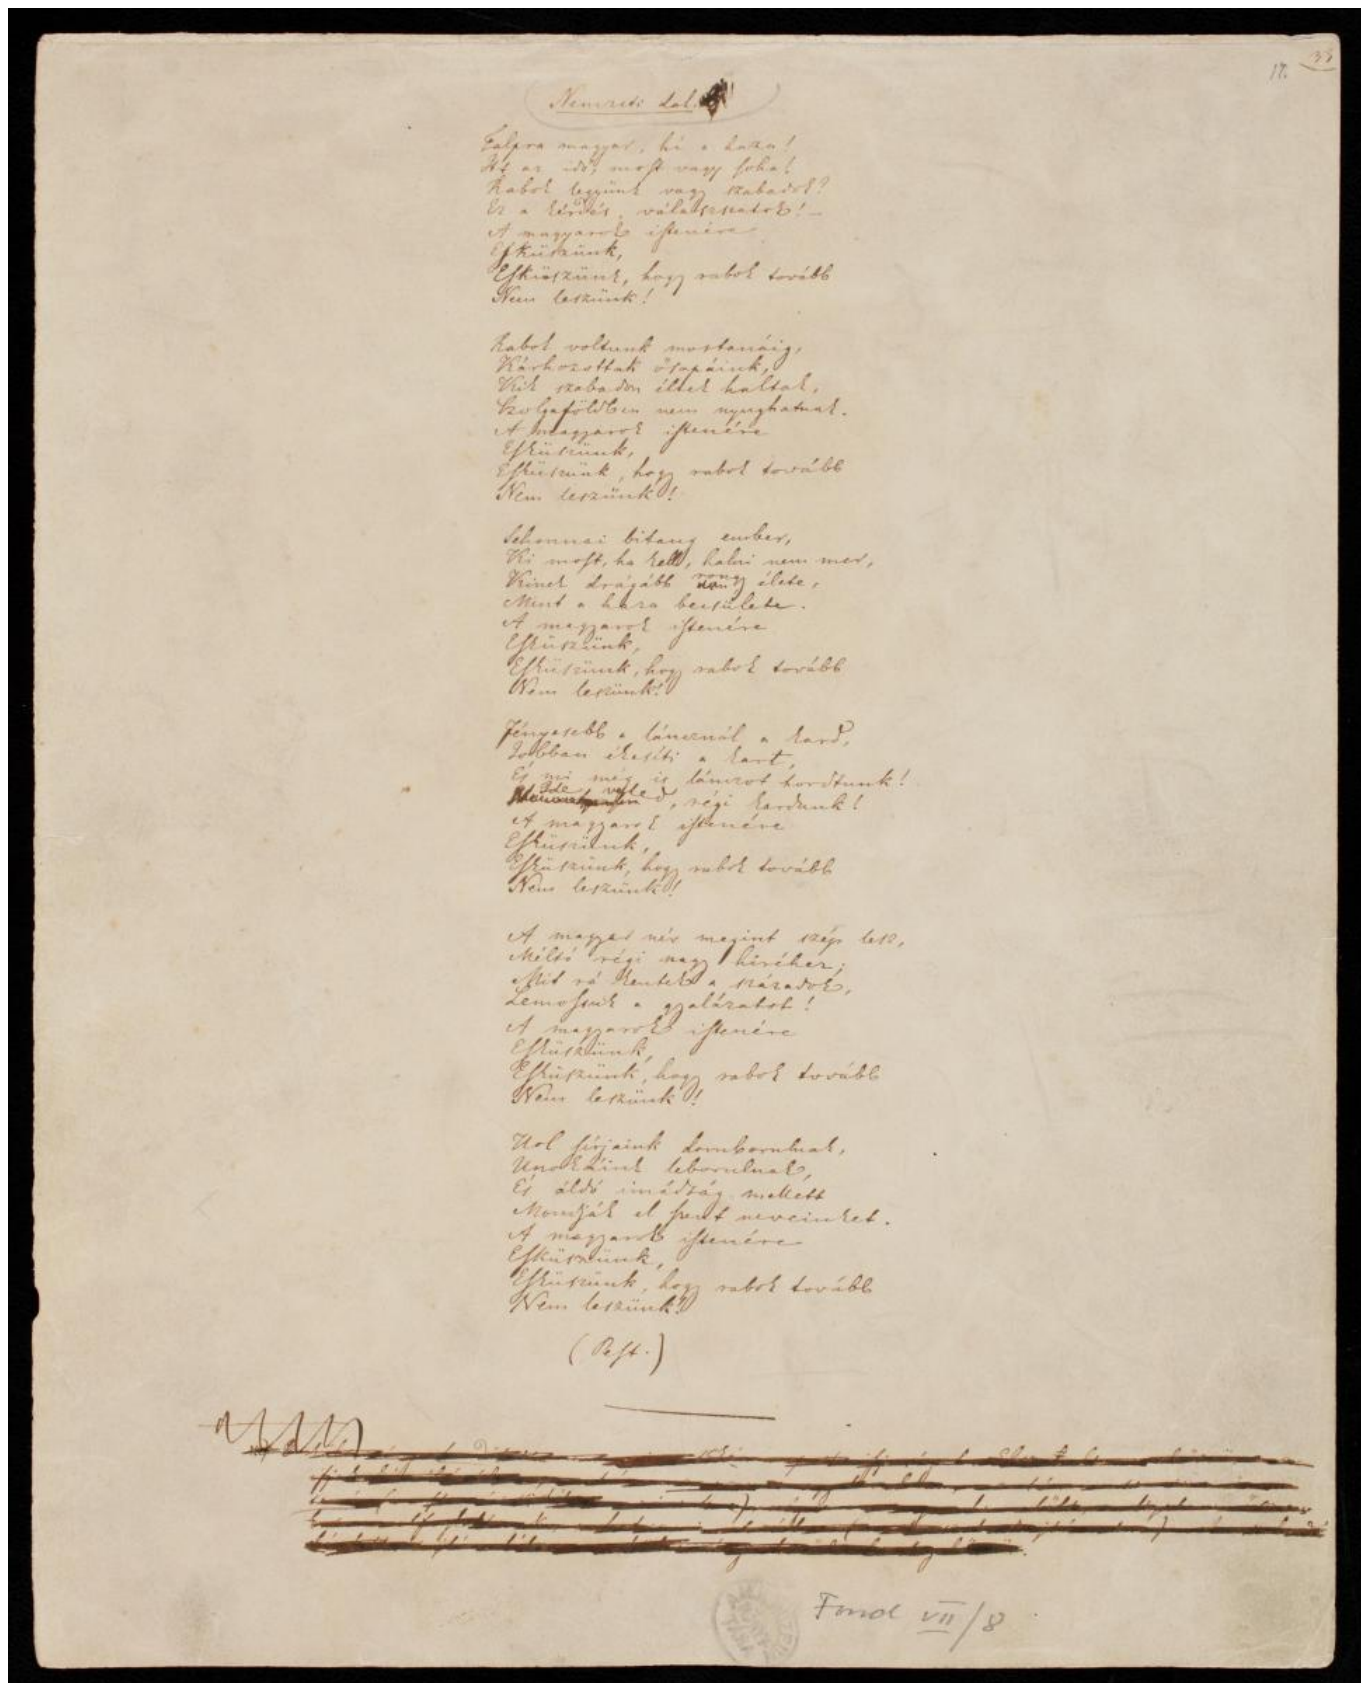 33
17.
Nemzeti dal.
Talpra magyar, hí a haza!
Itt az idő, most vagy soha!
Rabok legyünk vagy szabadok?
Ez a kérdés, válasszatok! –
A magyarok istenére
Esküszünk,
Esküszünk, hogy rabok tovább
Nem leszünk!
Rabok voltunk mostanáig,
Kárhozottak ősapáink,
Kik szabadon éltek haltak,
Szolgaföldben nem nyughatnak.
A magyarok istenére
Esküszünk,
Esküszünk, hogy rabok tovább
Nem leszünk!
Sehonnai bitang ember,
Ki most, ha kell, halni nem mer,
Kinek drágább rongy élete,
Mint a haza becsülete.
A magyarok istenére
Esküszünk,
Esküszünk, hogy rabok tovább
Nem leszünk!
Fényesebb a láncznál a kard,
Jobban ékesíti a kart,
És mi még is lánczot hordtunk!
Ide veled, régi kardunk!
A magyarok istenére
Esküszünk,
Esküszünk, hogy rabok tovább
Nem leszünk!
A magyar név megint szép lesz,
Méltó régi nagy hiréhez;
Mit rá kentek a századok,
Lemossuk a gyalázatot!
A magyarok istenére
Esküszünk,
Esküszünk, hogy rabok tovább
Nem leszünk!
Hol sírjaink domborulnak,
Unokáink leborulnak,
És áldó imádság mellett
Mondják el szent neveinket.
A magyarok istenére
Esküszünk,
Esküszünk, hogy rabok tovább
Nem leszünk!
(Pest.)
Fond VII/8